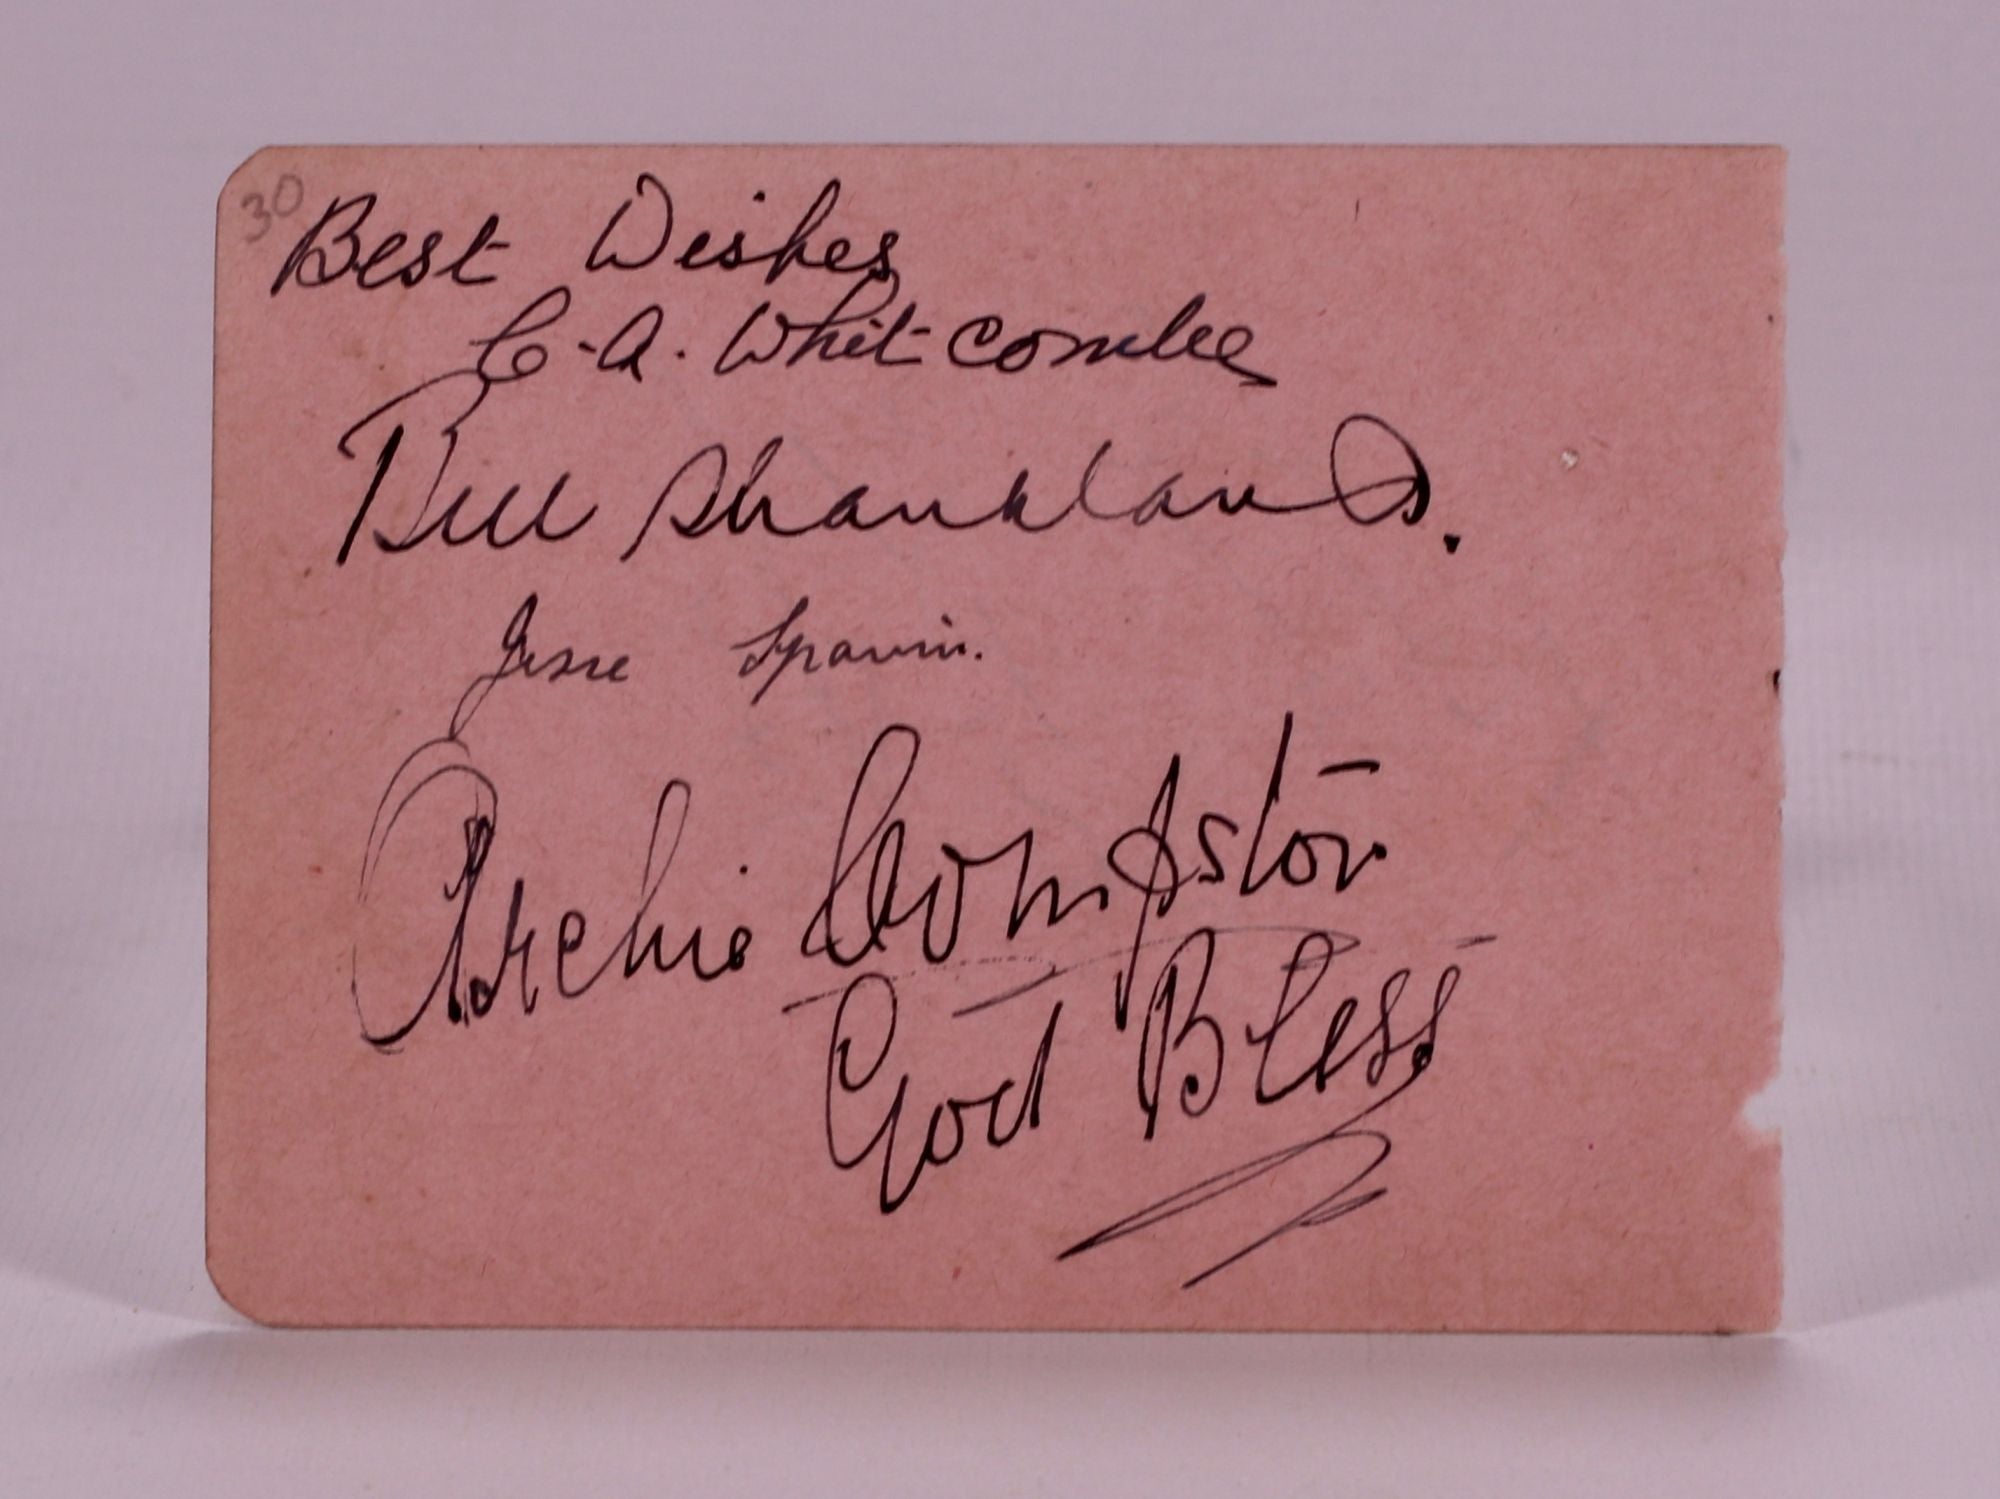 30
Best Wishes
C.A. Whitcombe
Bill Shankland.
Jesse Spavin.
Archie Compston
God Bless